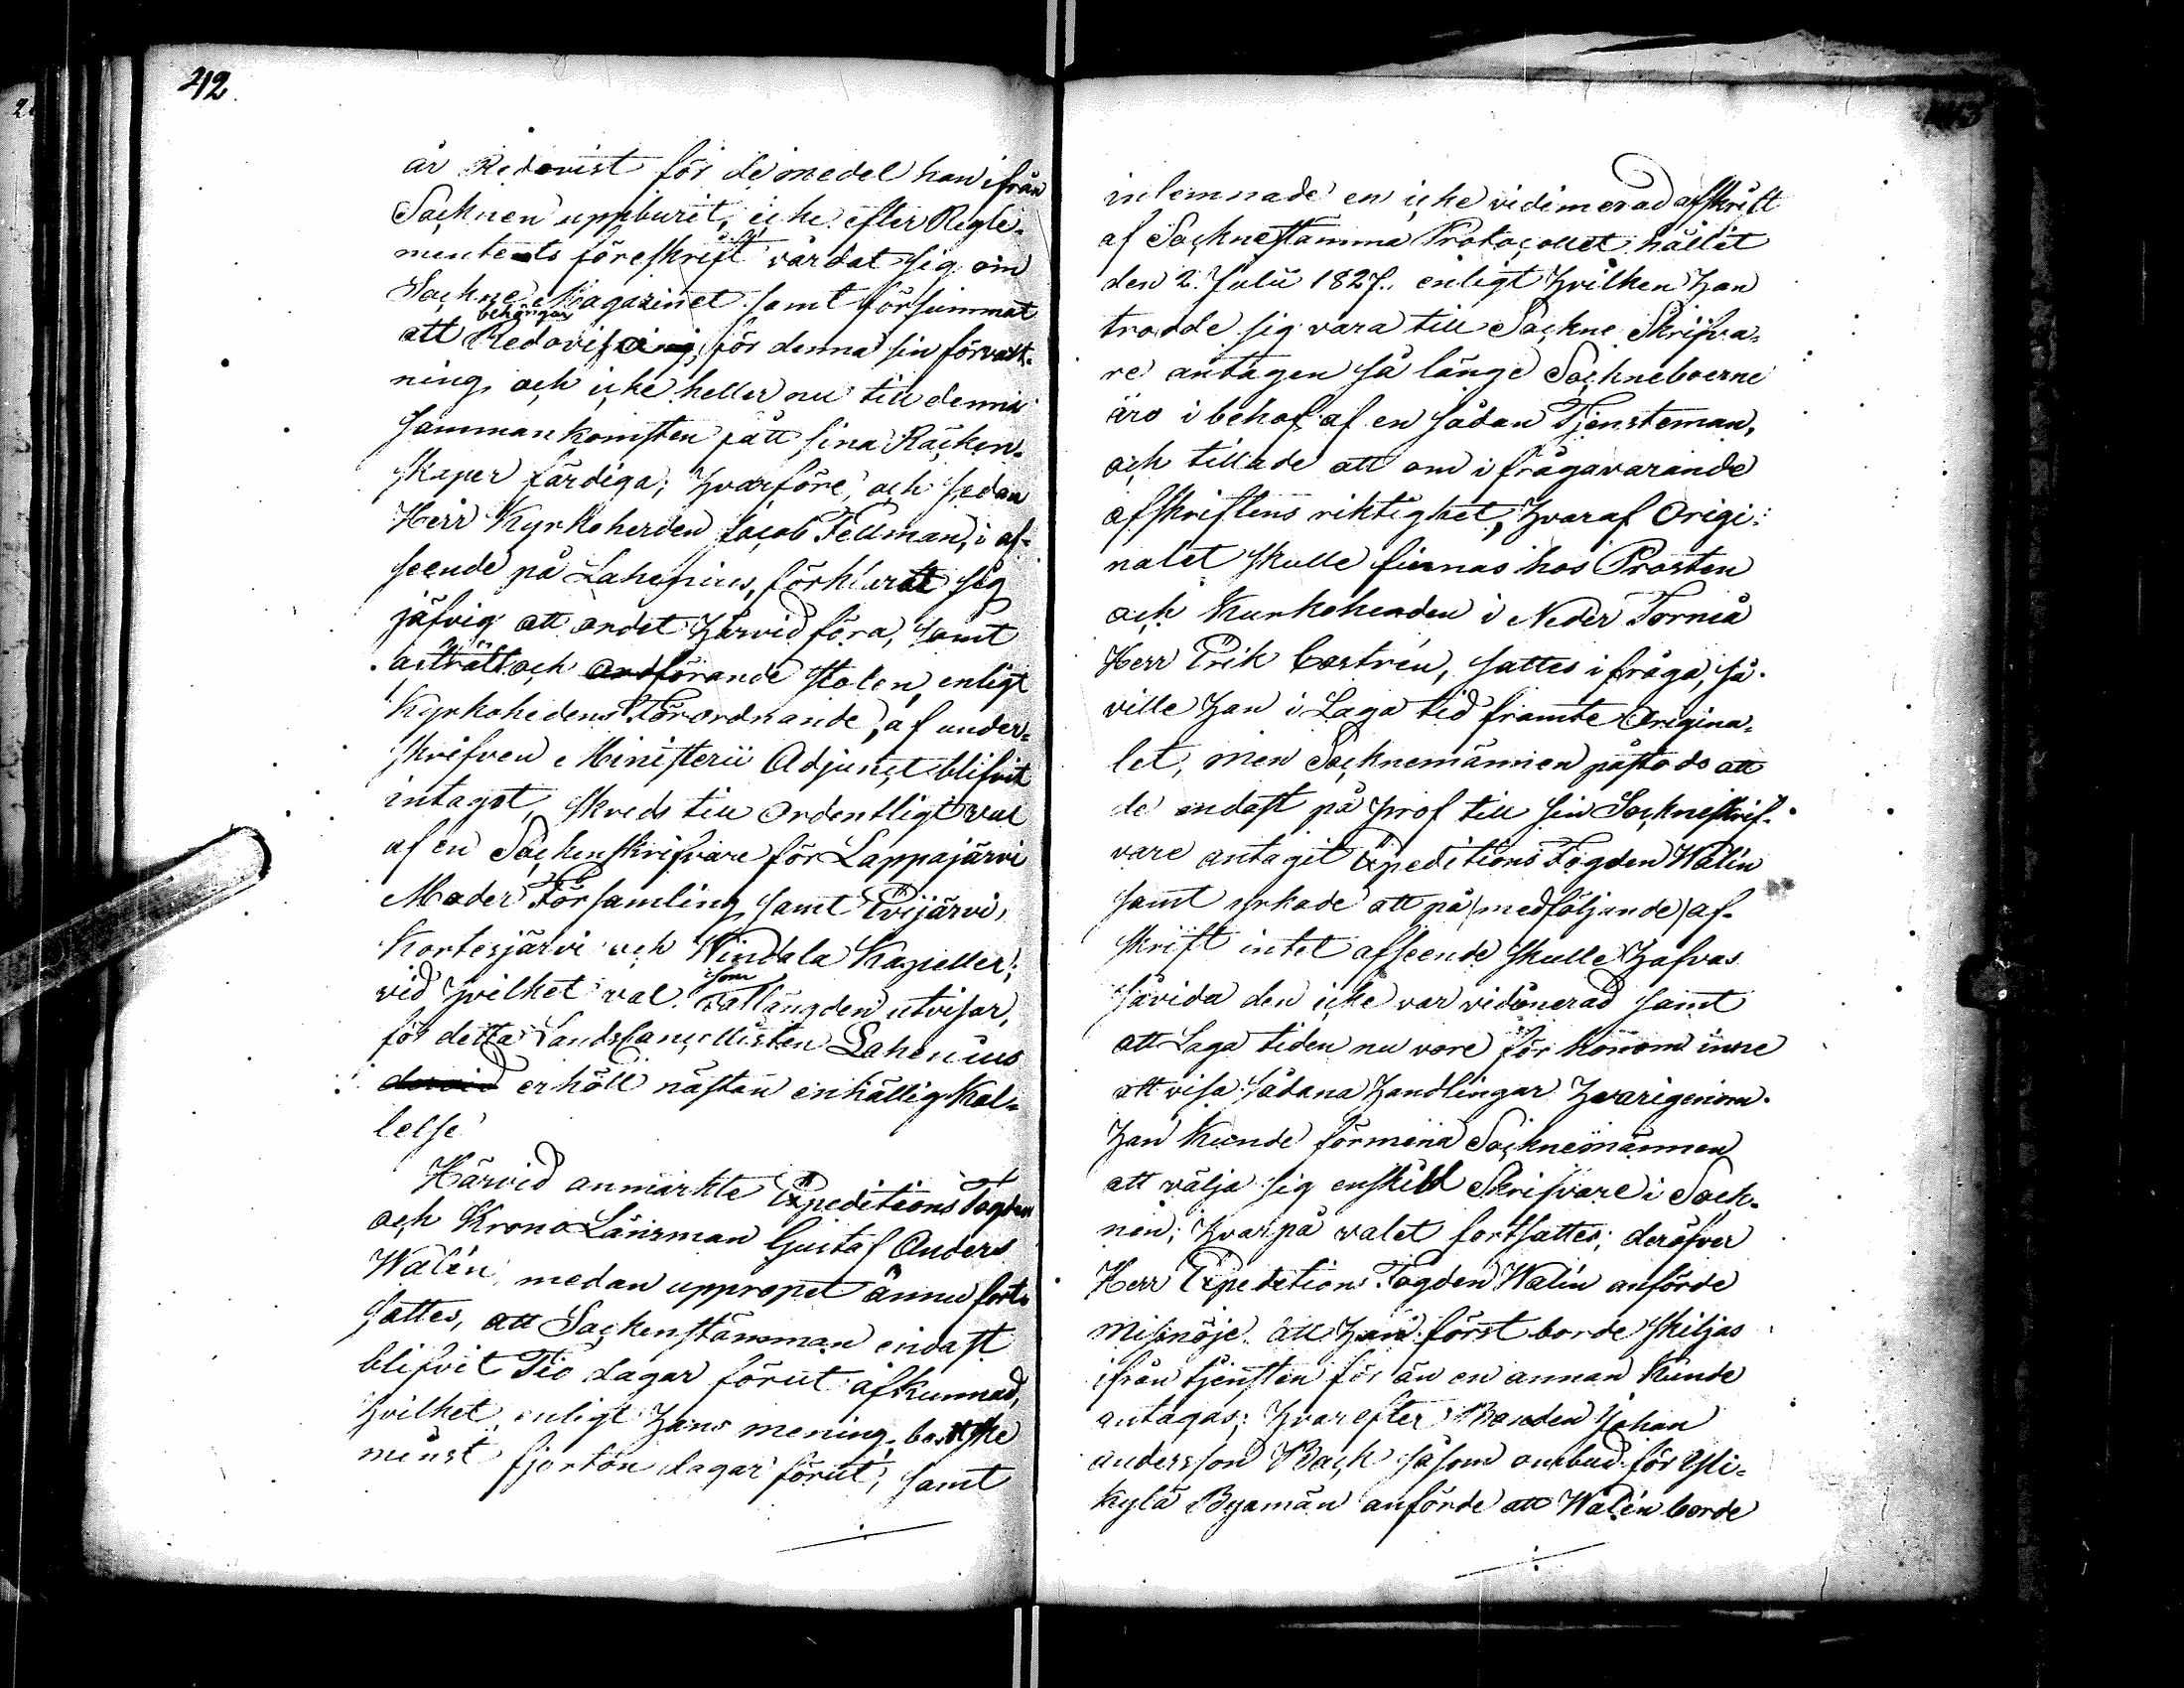 212
är Redovist för de medel han ifrån
Socknen uppburit, icke efter Regle-
mentets föreskrift vårdat sig om
Sockne Magazinet samt försummat
behörigen
att Redovisa för denna sin förvalt-
ning, och icke heller nu till denna
sammankomsten fått sina Räcken-
skaper färdiga; hvarföre, och sedan
Herr Kyrkoherden Jacob Fellman, i af-
seende på Lahenius, förklarat sig
jäfvig att ordet härvid föra, samt
och ordförande stolen, enligt
Kyrkohedens Förordnande, af under-
skrifven Ministerii Adjunct blifvit
intagot, skreds till ordentligt val
af en Sockenskrifvare för Lappajärvi
Moder Församling samt Evijärvi,
Kortesjärvi och Windala Kapeller;
som
vid hvilket val vallängden utvisar,
för detta LandsCancellisten Lahenius
erhöll nästan enhällig Kal-
lelse
Härvid anmärkte Expeditions Fogden
och Krono Länsman Gustaf Anders
Walén, medan uppropet ännu fort-
sattes, att Sockenstämman endast
blifvit Tio dagar förut afkunnad,
hvilket enligt hans mening, bordt ske
minst fjorton dagar förut, samt
inlemnade en icke vidimerad afskrift
af Socknestämma Protocollet hållit
den 2. Julii 1827. enligt hvilken han
trodde sig vara till Sockne Skrifva-
re antagen så länge Sockneboerne
äro i behof af en sådan Tjensteman,
och tillade att om i frågavarande
afskriftens riktighet, hvaraf Origi-
nalet skulle finnas hos Prosten
och Kyrkoherden i Neder Torneå
Herr Erik Castrén, sattes i fråga, så
ville han i Laga tid framte Origina-
let, men Socknemännen påstodo att
de endast på prof till sin Sockneskrif-
vare antagit Expeditions Fogden Walén
samt yrkade att på (medföljande) af-
skrift intet afseende skulle hafvas
såvida den icke var vidimerad samt
att Laga tiden nu vore för honom inne
att visa sådana handlingar hvarigenom
han kunde förmena Socknemännen
att välja sig enskild Skrifvare i Sock-
nen; hvarpå valet fortsattes; deröfver
Herr Expeditions Fogden Walén anförde
misnöje att han först borde skiljas
ifrån tjensten för än en annan kunde
antagas; hvarefter Bonden Johan
andersson Back såsom ombud för Yli-
kylä Byamän anförde att Walén borde